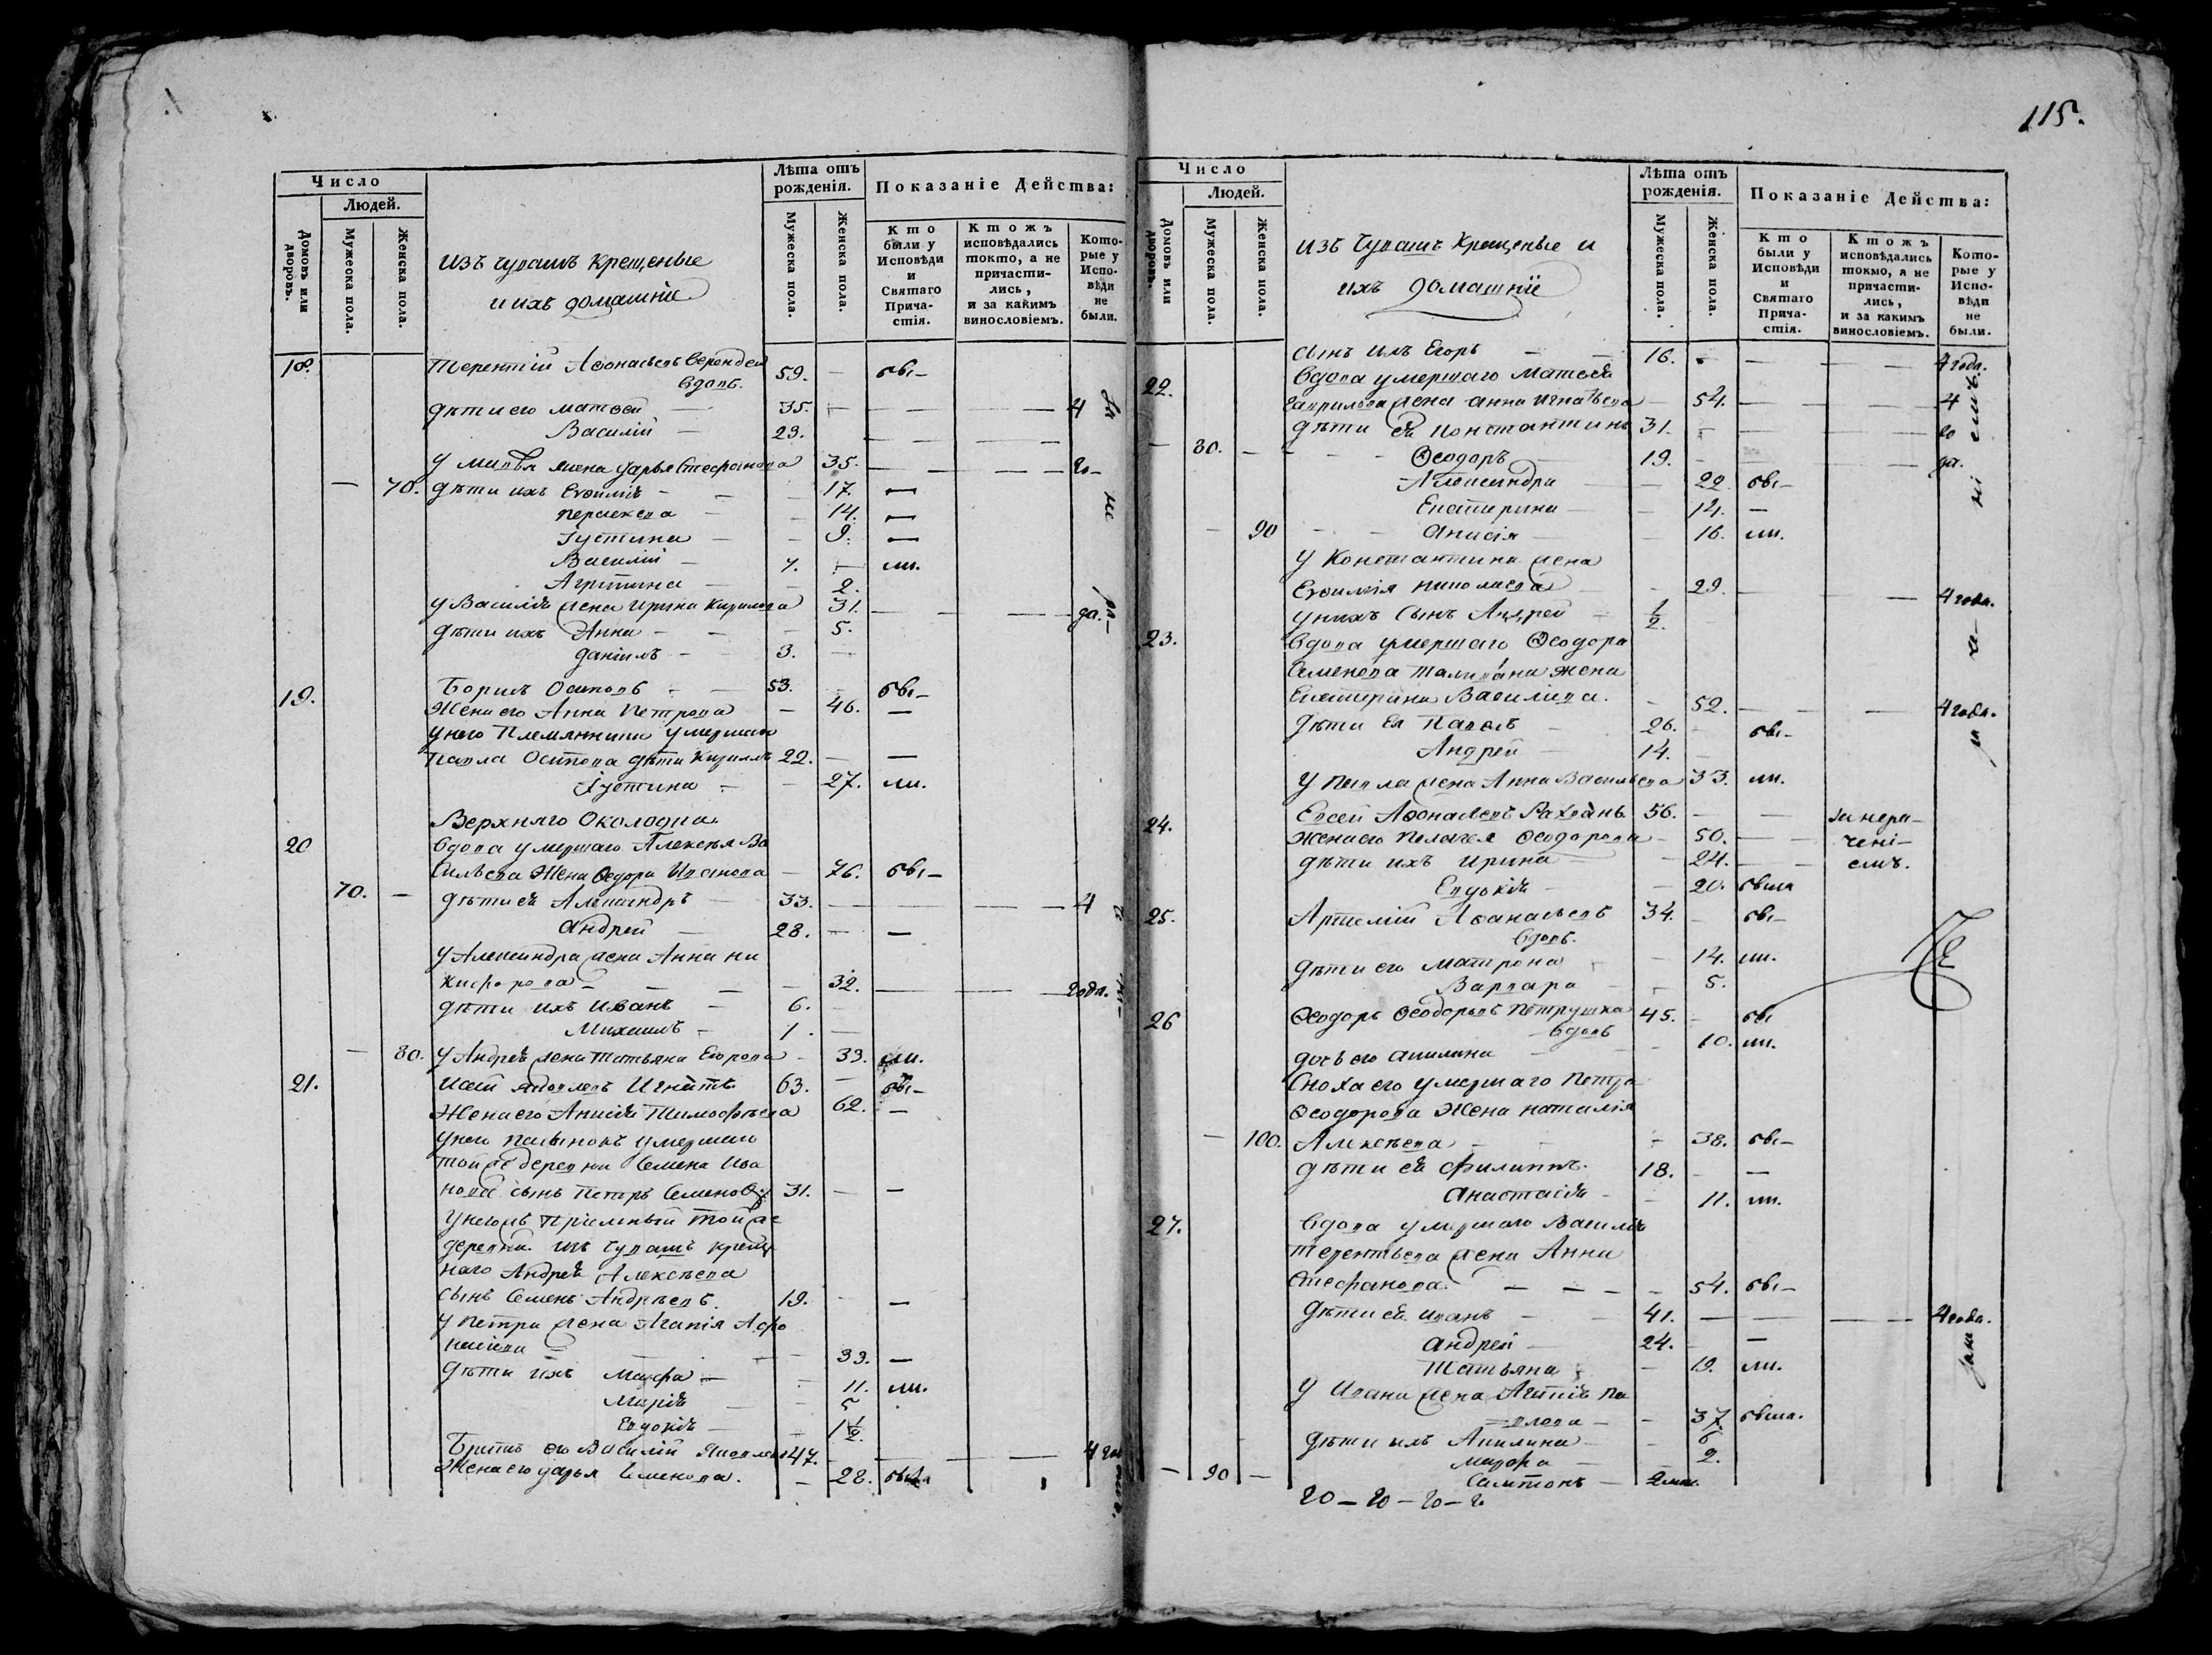 Число
Людей.
Домовъ или дворовъ.
Мужеска пола.
Женска пола.
изъ чувашъ крещеные
и ихъ домашніе
Лѣта отъ рожденія.
Мужеска пола.
Женска пола.
Показаніе Действа:
Кто были у Исповѣди и Святаго Причастія.
Ктожъ исповѣдались токмо, а не причастились, и за какимъ винословіемъ.
Которые у Исповѣди не были.
18. Терентій Аѳонасьевъ 59. — бы—
вдовъ.
дѣти его Матвей — 35. — — — 4
Василій — 23. — — —
жена Дарья Стефанова 35. — — — го—
— 70. дѣти ихъ Евѳимія — — 17. —
Пераскева — — 14. —
Іустина — — 9. —
Василій — 7. — ли.
Агрипина — — 2.
у Василія жена Ирина Кирилова 31. — — да.
дѣти ихъ Анна — — 5.
Даніилъ — 3. —
19. Борисъ Осиповъ — 53. — бы—
Жена его Анна Петрова — 46. —
у него Племянники умершаго
Павла Осипова дѣти Кириллъ 22. — —
Іустина — — 27. ли.
Верхняго Околодка
20 вдова умершаго Алексѣя Ва
сильева Жена Ѳедора Иванова — 76. бы—
70. — дѣти ея Александръ — 33. — — — 4
Андрей — 28. — —
у Александра жена Анна Ни
кифорова — — — 32. — — года.
дѣти ихъ Иванъ — 6. —
Михаилъ — 1. —
— 80. у Андрея жена Татьяна Егорова — 33. ли.
21. Яковлевъ 63. — бы—
Жена его Анисія Тимофѣева 62. —
у него пасынокъ умершаго
той же деревни Семена Ива
нова сынъ Петръ Семеновъ 31. — —
у него жъ пріемный той же
деревни изъ чувашъ креще
наго Андрея Алексѣева
сынъ Семенъ Андрѣевъ. 19. — —
у Петра жена Агапія Афо
насіева — — 33. —
дѣти ихъ Марфа — — 11. ли.
Марія — — 5
Евдокія — — 1½.
Братъ его Василій Яковлевъ 47. — — — 4 года
Жена его Дарья Семенова. — 28. была
115.
Число
Людей.
Домовъ или дворовъ.
Мужеска пола.
Женска пола.
изъ чувашъ крещеные и
ихъ домашніе
Лѣта отъ рожденія.
Мужеска пола.
Женска пола.
Показаніе Действа:
Кто были у Исповѣди и Святаго Причастія.
Ктожъ исповѣдались токмо, а не причастились, и за какимъ винословіемъ.
Которые у Исповѣди не были.
сынъ ихъ Егоръ — — 16. — — — 4 года.
22. вдова умершаго Матвея
Гаврилова жена Анна Игнатьева — 54. — — 4
дѣти ея Константинъ 31. — — — го
— 80. — — Ѳеодоръ — 19. — — — да.
Александра — — 22. бы—
Екатерина — — 14. —
— 90 — — Анисія — — 16. ли.
у Константина жена
Евѳимія Николаева — 29. — — 4 года.
у нихъ сынъ Андрей — ½. —
23. вдова умершаго Ѳеодора
Семенова жена
Екатерина Васильева. — 52. — — — 4 года.
дѣти ея Павелъ — 26. — бы—
Андрей — 14. —
у Павла жена Анна Васильева 33. ли.
24. Евсей Аѳонасьевъ 56. — — за нера—
Жена его Пелагея Ѳеодорова — 50. — — чені—
дѣти ихъ Ирина — — 24. — — емъ.
Евдокія — — 20. была
25. Артемій Аѳанасьевъ 34. — бы—
вдовъ.
дѣти его Матрона — — 14. ли.
Варвара — — 5.
26 Ѳеодоръ Ѳеодоровъ Петрушка 45. — бы
вдовъ
дочь его Акилина — — 10. ли.
Сноха его умершаго Петра
Ѳеодорова Жена Наталія
— 100. Алексѣева — — — 38. бы—
дѣти ея Филиппъ. 18. — —
Анастасія — — 11. ли.
27. вдова умершаго Василія
Терентьева жена Анна
Стефанова. — — — — 54. бы—
дѣти ея Иванъ — — 41. — — — 4 года.
Андрей — 24. — —
Татьяна — — 19. ли.
у Ивана жена Агапія Па
=влова — — 37. была.
дѣти ихъ Акилина — — 6
Марфа — — 2.
— 90 — Сампсонъ — 2 мес.